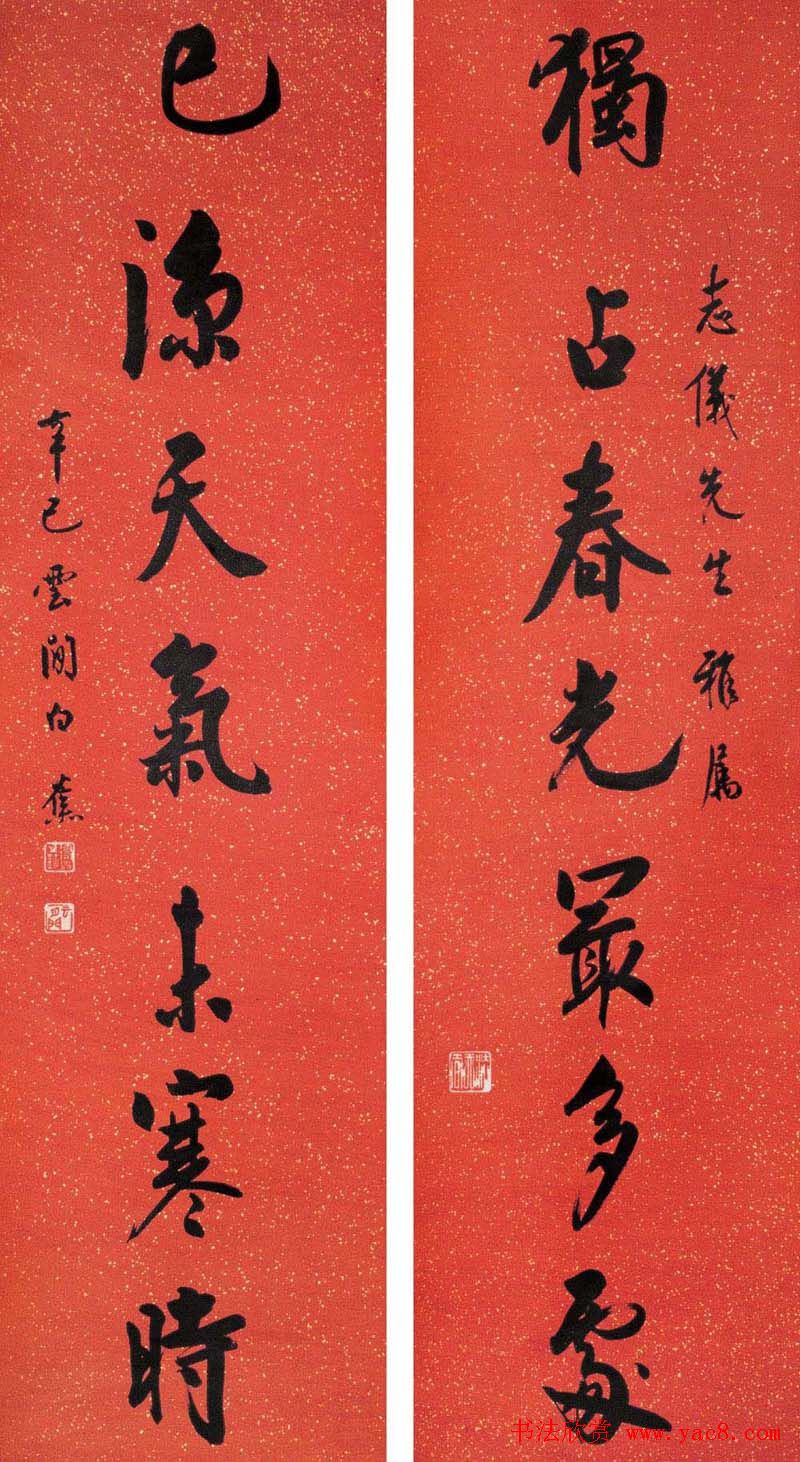 志儀先生雅属
獨占春光最多處
已涼天氣未寒時
辛巳雲間白蕉
书法欣赏 www.yac8.com